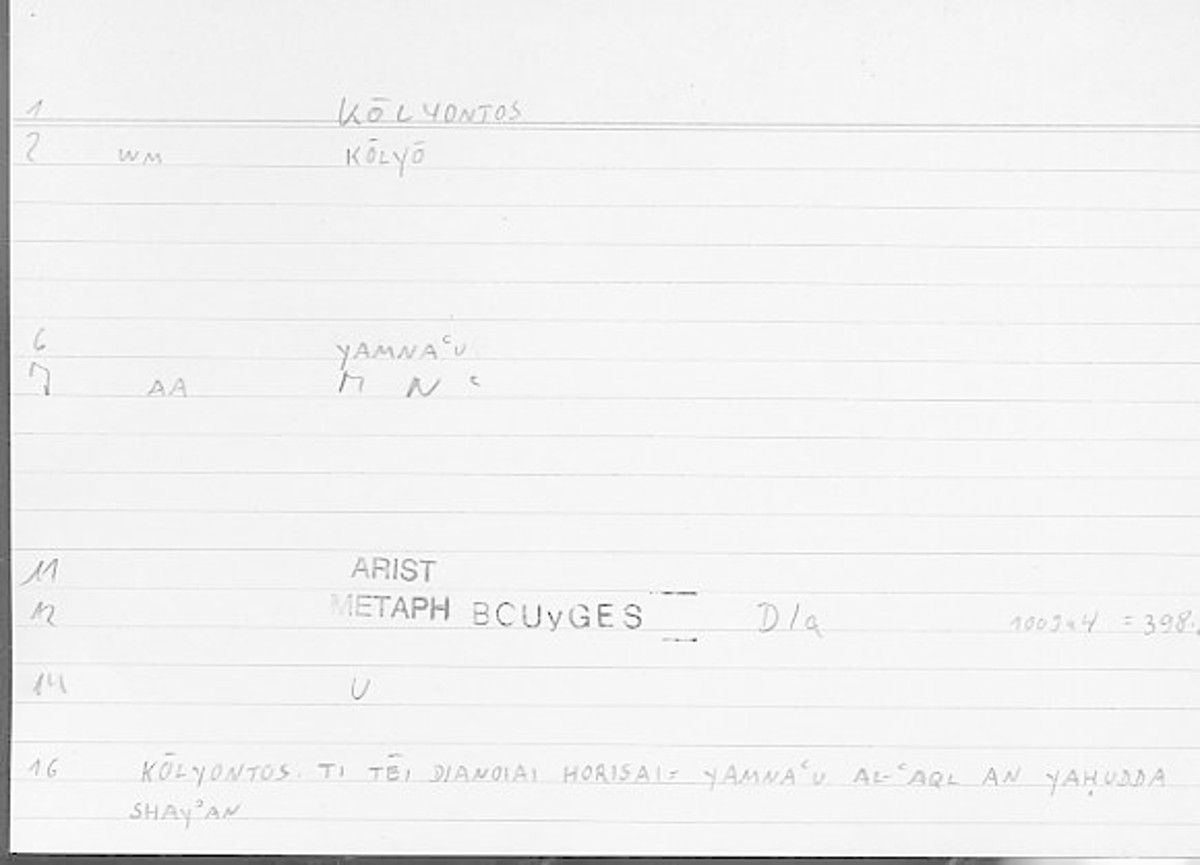 1 KŌLYONTOS
2 WM KŌLYŌ
6 YAMNAʿU
7 AA M N ʿ
11 ARIST
12 METAPH BCUyGES D/a 1009a4 = 398.
14 U
16 KŌLYONTOS. TI TĒI DIANOIAI HORISAI = YAMNAʿU AL-ʿAQL AN YAḤUDDA
SHAYʾAN